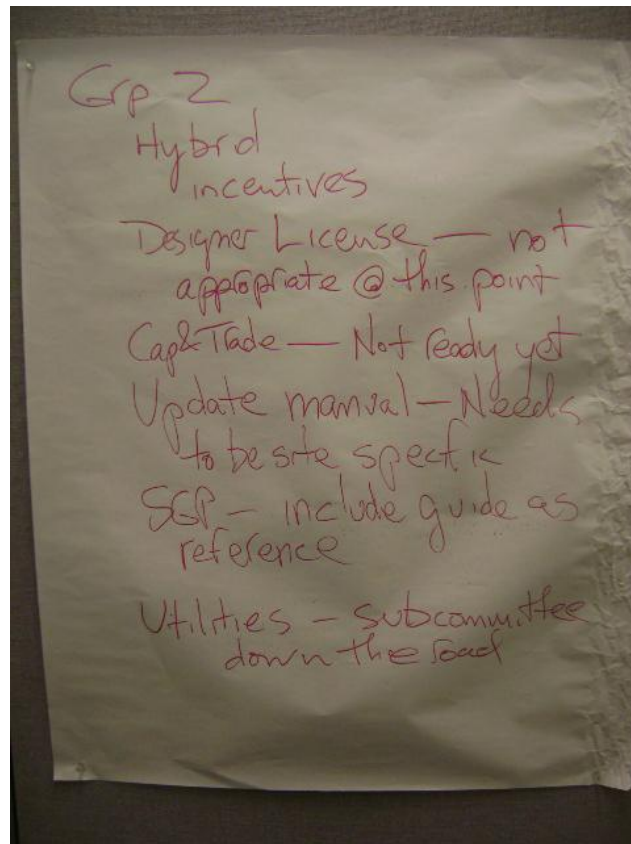 Grp 2
Hybrid
incentives
Designer License — not
appropriate @ this point
Cap & Trade — Not ready yet
Update manual — Needs
to be site specific
SGP — include guide as
reference
Utilities — subcommittee
down the road